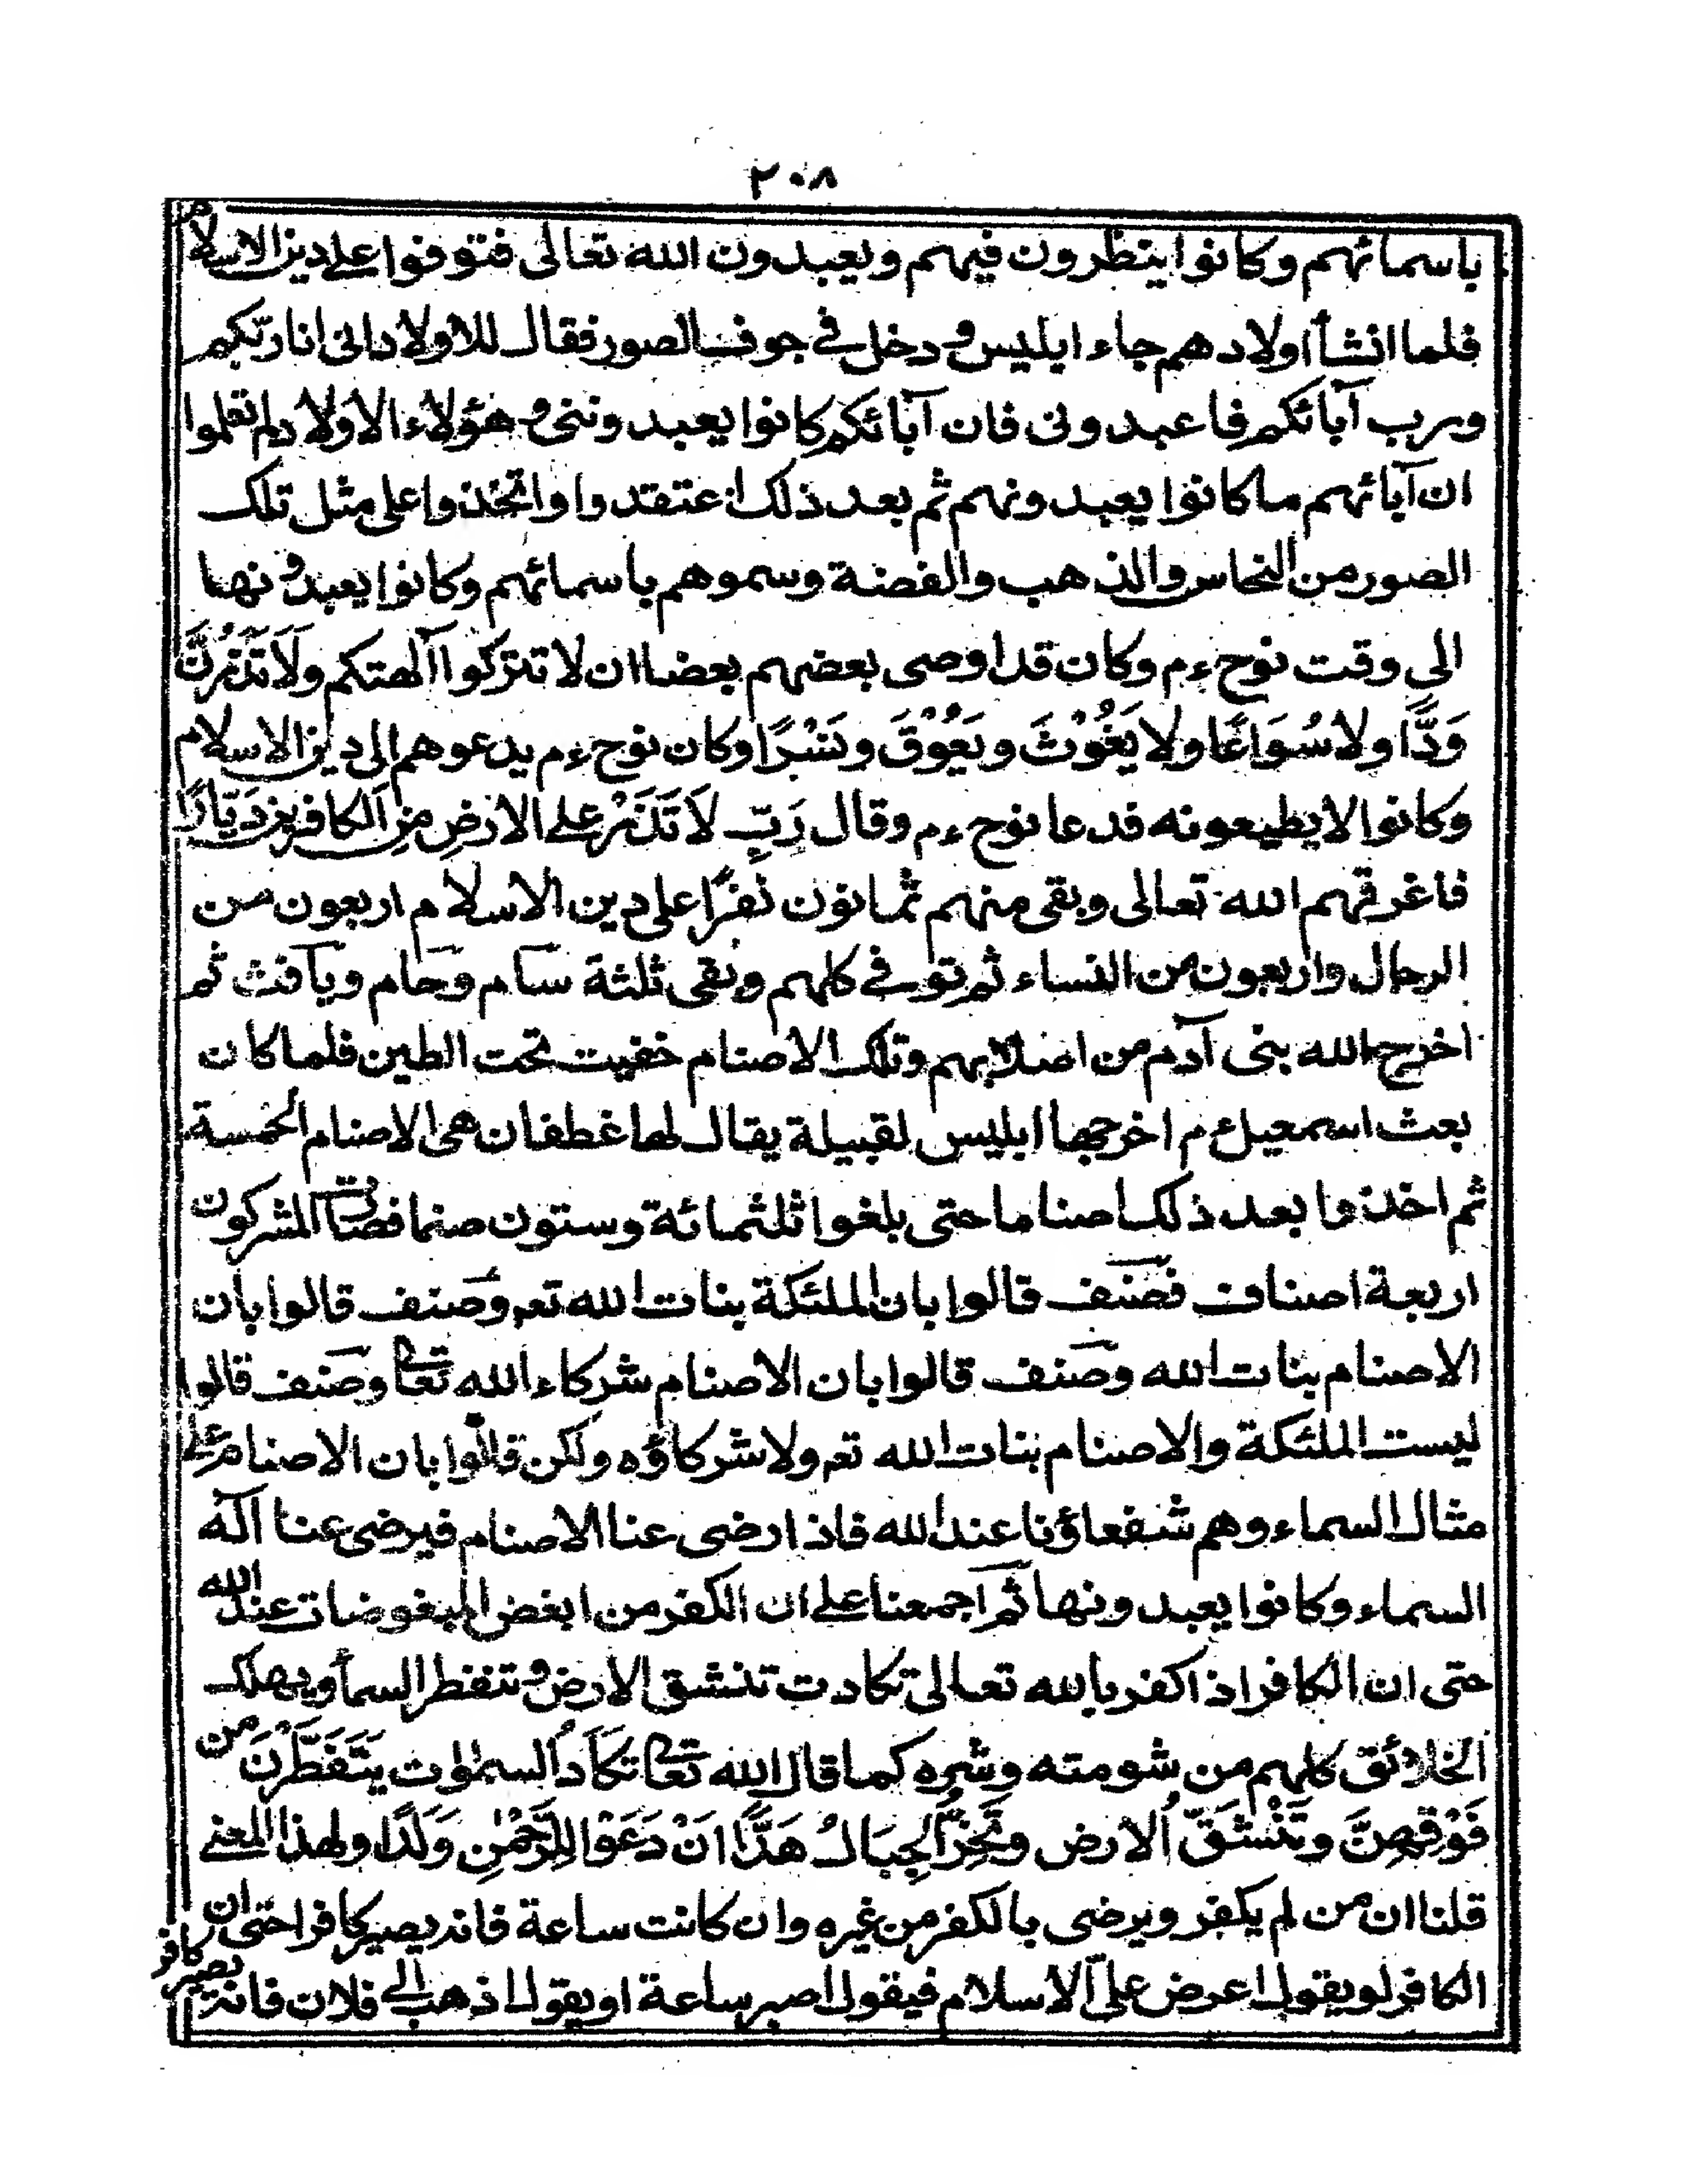 ٢٠٨
باسمائهم وكانوا ينظرون فيهم ويعبدون الله تعالى فتوفوا على دين الاسلام
فلما انشأ اولادهم جاء ابليس ودخل في جوف الصور فقال للاولاد انى انا ربكم
ورب آبائكم فاعبدونى فان آبائكم كانوا يعبدوننى وهؤلاء الاولاد لم تعلموا
ان آبائهم ما كانوا يعبدونهم ثم بعد ذلك اعتقدوا واتخذوا على مثل تلك
الصور من النحاس والذهب والفضة وسموهم باسمائهم وكانوا يعبدونها
الى وقت نوح ءم وكان قد اوصى بعضهم بعضا ان لا تتركوا آلهتكم ولَا تَذَرُنَّ
وَدًّا ولا سُوَاعًا ولا يَغُوْثَ ويَعُوْقَ ونَسْرًا وكان نوح ءم يدعوهم الى دين الاسلام
وكانوا لا يطيعونه فدعا نوح ءم وقال رَبِّ لَا تَذَرْ على الارضِ مِنَ الكافرين دَيَّارًا
فاغرقهم الله تعالى وبقى منهم ثمانون نفرًا على دين الاسلام اربعون من
الرجال واربعون من النساء ثم توفى كلهم وبقى ثلثة سام وحام ويافث ثم
اخرج الله بنى آدم من اصلابهم وتلك الاصنام خفيت تحت الطين فلما كان
بعث اسمعيل ءم اخرجها ابليس لقبيلة يقال لها غطفان هى الاصنام الخمسة
ثم اخذوا بعد ذلك اصناما حتى بلغوا ثلثمائة وستون صنما فصارت المشركون
اربعة اصناف فصنف قالوا بان الملئكة بنات الله تعه وصنف قالوا بان
الاصنام بنات الله وصنف قالوا بان الاصنام شركاء الله تعالى وصنف قالوا
ليست الملئكة والاصنام بنات الله تعه ولا شركاؤه ولكن قالوا بان الاصنام على
مثال السماء وهم شفعاؤنا عند الله فاذا رضى عنا الاصنام فيرضى عنا اله
السماء وكانوا يعبدونها ثم اجمعنا على ان الكفر من ابغض المبغوضات عند الله
حتى ان الكافر اذا كفر بالله تعالى تكادت تنشق الارض وتنفطر السمأ ويهلك
الخلائق كلهم من شومته وشره كما قال الله تعالى تَكَادُ السموات يَتَفَطَّرْنَ من
فَوْقِهِنَّ وتَنْشَقُّ الارض وتَخِرُّ الجِبَالُ هَدًّا اَنْ دَعَوْا لِلرَّحْمٰنِ وَلَدًا ولهذا المعنى
قلنا ان من لم يكفر ويرضى بالكفر من غيره وان كانت ساعة فانه يصير كافرا حتى ان
الكافر لو يقول اعرض علىّ الاسلام فيقول اصبر ساعة او يقول اذهب الى فلان فانه يصير كافر